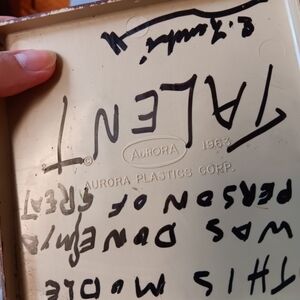 THIS MODLE
WAS DONE BY A
PERSON OF GREAT
TALENT
AURORA 1963
© AURORA PLASTICS CORP.